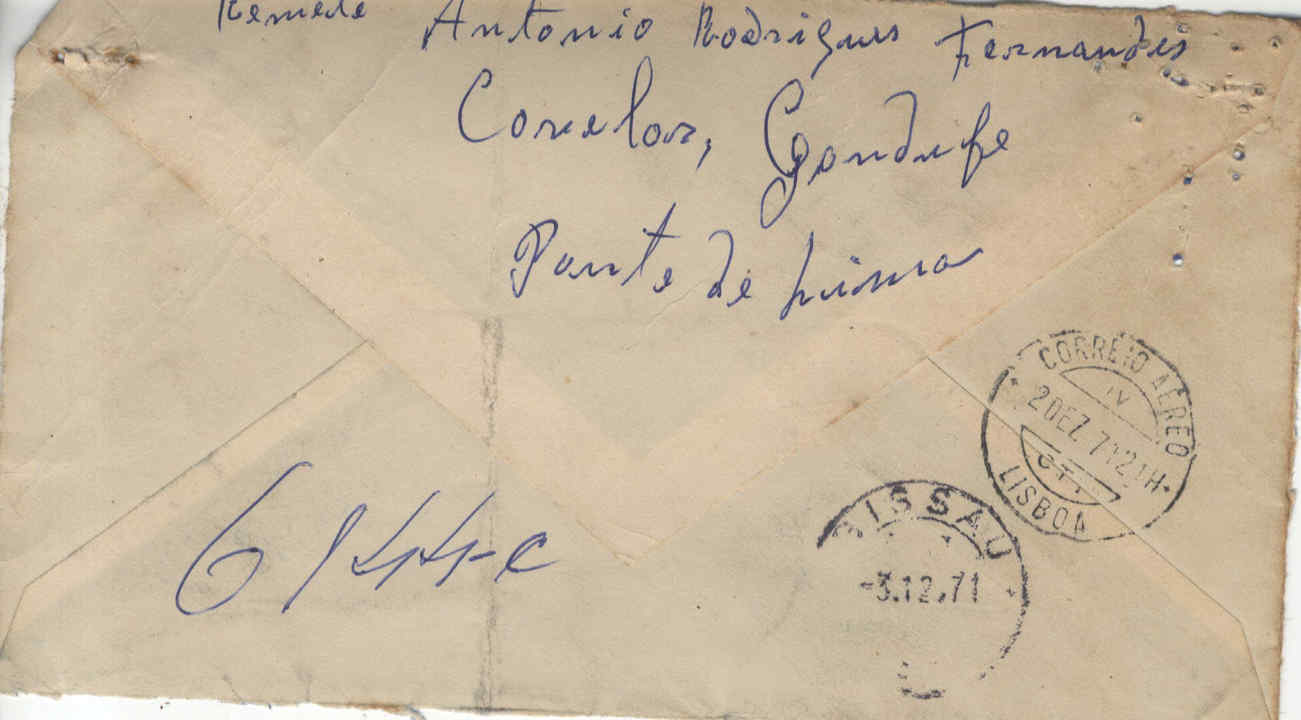 Remete Antonio Rodrigues Fernandes
Corvelos, Gondufe
Ponte de Lima
CORREIO AEREO
IV
2 DEZ 71 21H
CTT
LISBOA
BISSAU
-3.12.71